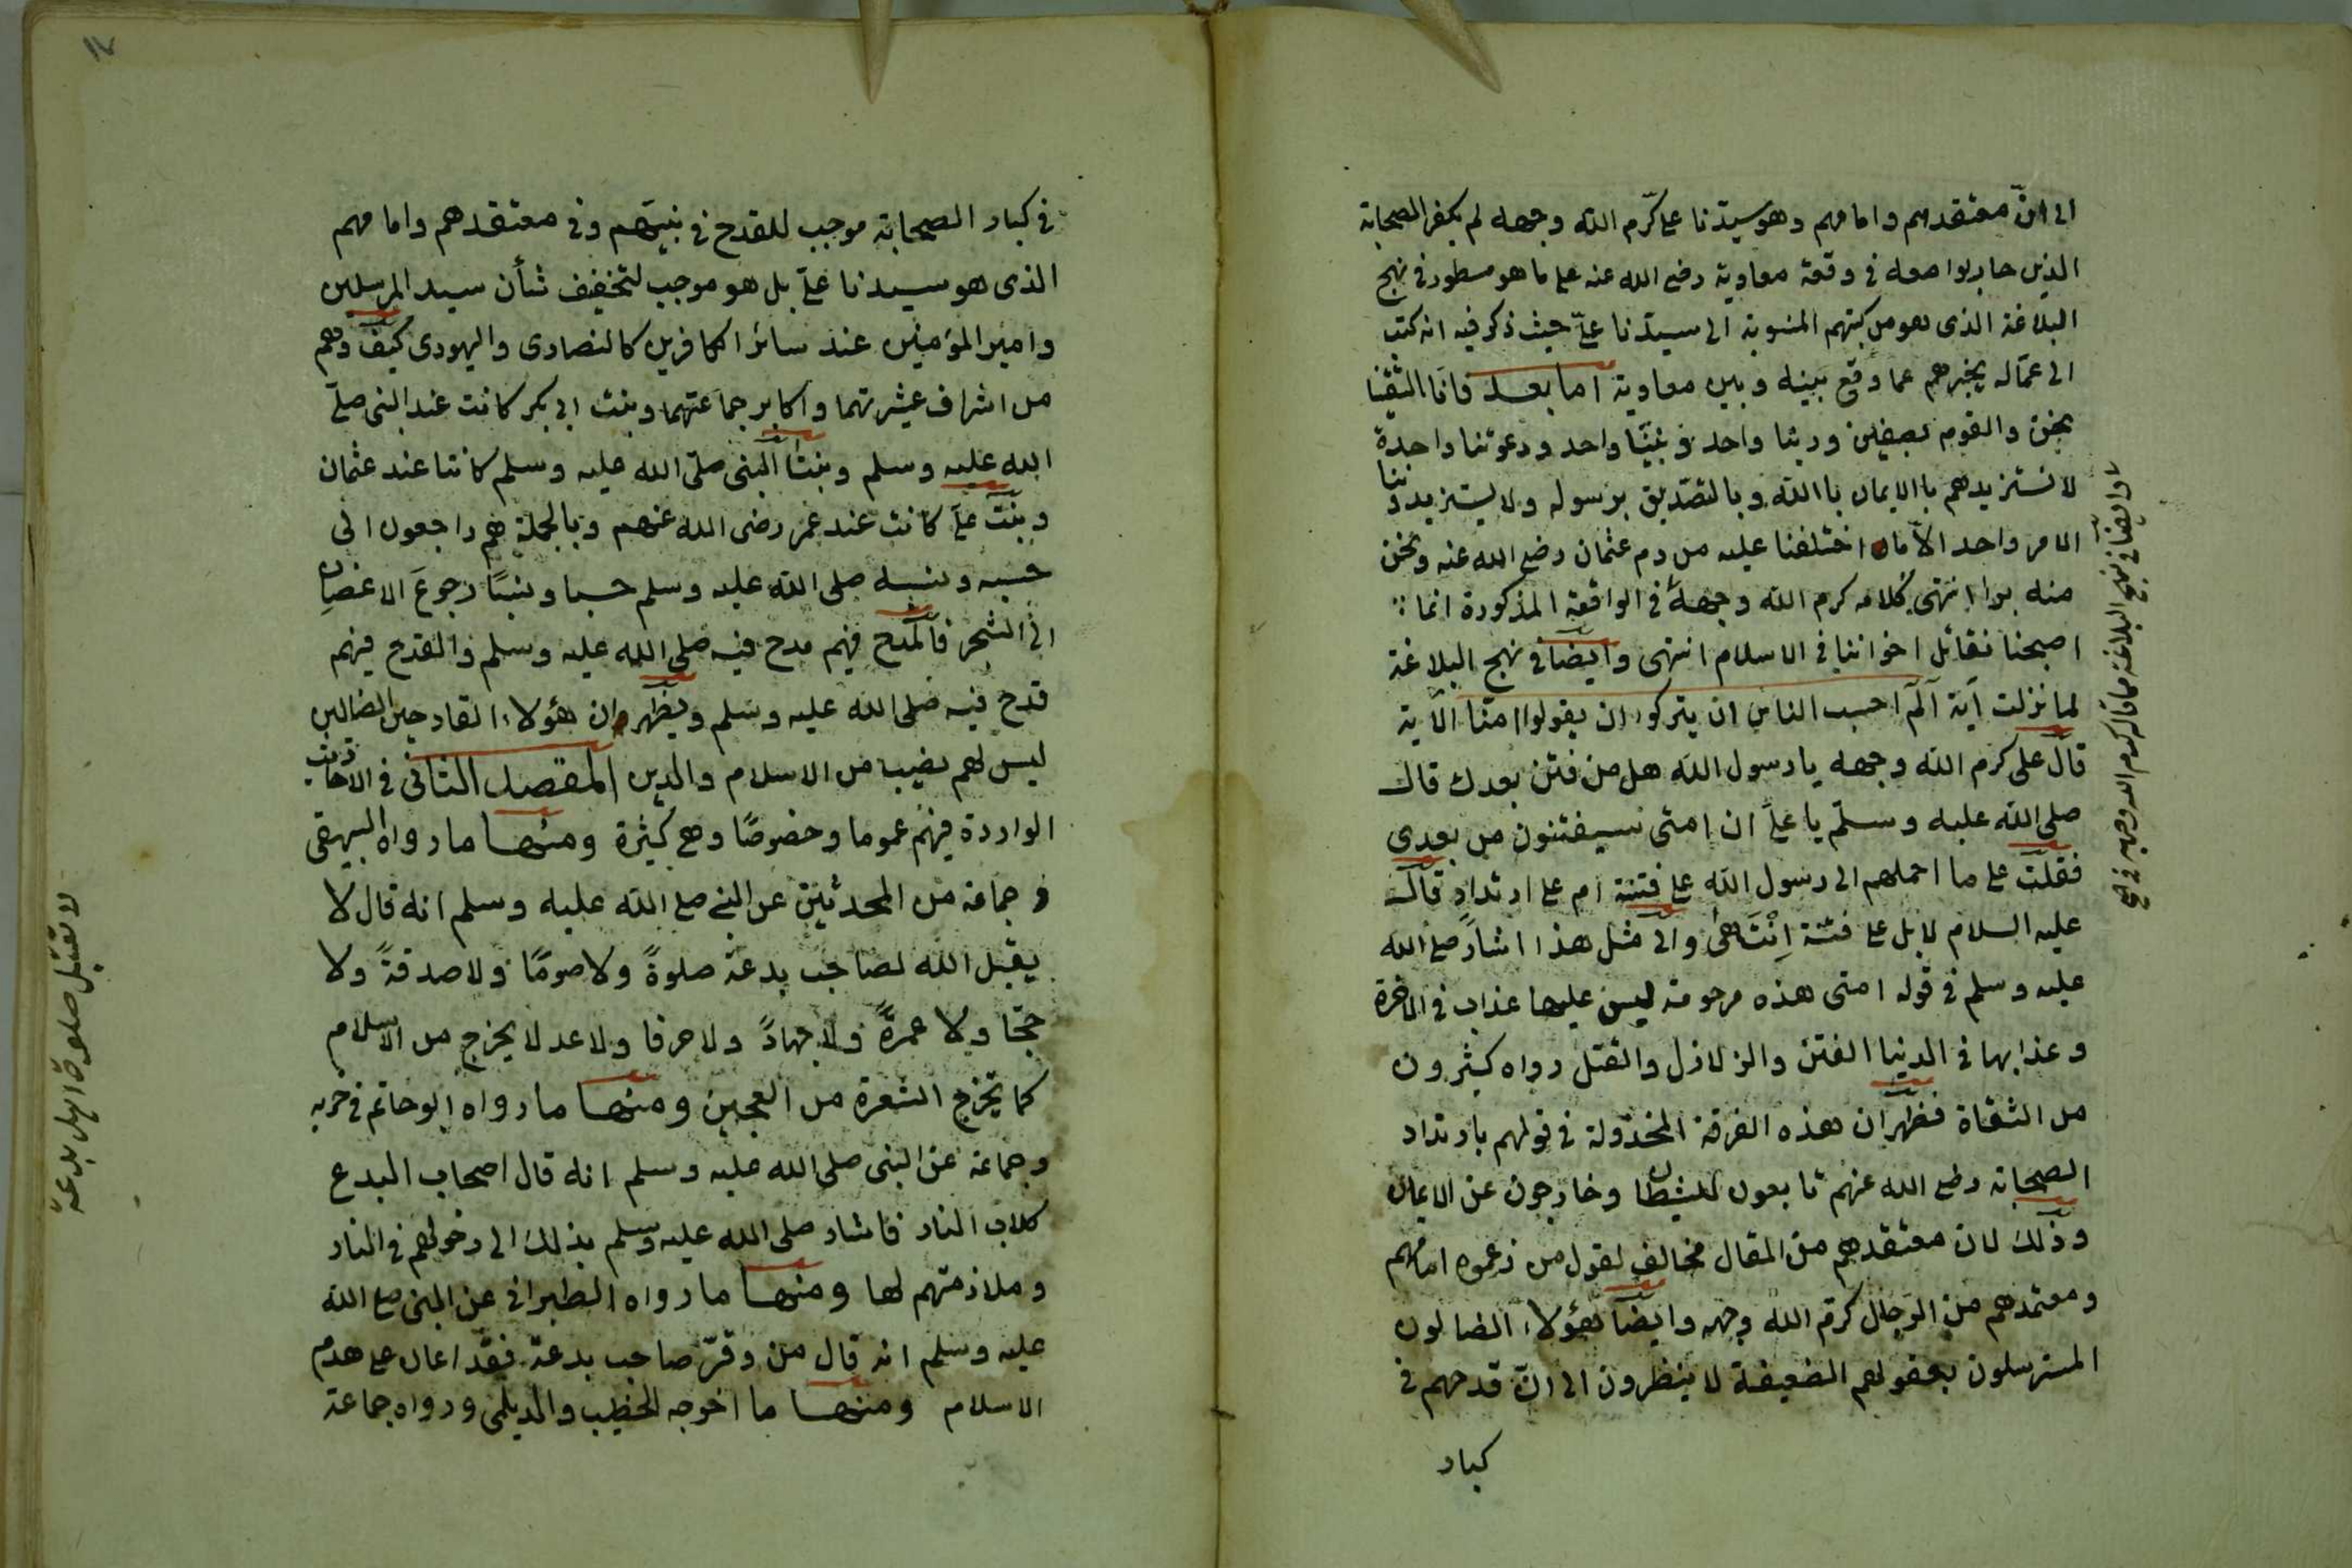 الى انّ معتقدهم وامامهم وهو سيّدنا على كرّم الله وجهه لم يكفر الصحابة
الذين حاربوا معه في وقعة معاوية رضى الله عنه على ما هو مسطور في نهج
البلاغة الذى هو من كتبهم المنسوبة الى سيدنا علىّ حيث ذكر فيه انه كتب
الى عمّاله يخبرهم عما وقع بينه وبين معاوية اما بعد فانّا التقينا
نحن والقوم بصفين وربنا واحد ونبيّنا واحد ودعوتنا واحدة
لا نستزيدهم باالايمان باالله وبالتصديق برسوله ولا يستزيدوننا
الامر واحد الاّ ما اختلفنا عليه من دم عثمان رضى الله عنه ونحن
منه براا انتهى كلامه كرم الله وجهه في الواقعة المذكورة انما
اصبحنا نقاتل اخواننا في الاسلام انتهى وايضا في نهج البلاغة
لما نزلت آية آلم احسب الناس ان يتركوا ان يقولوا امنا الآية
قال على كرم الله وجهه يا رسول الله هل من فتن بعدك قال
صلى الله عليه وسلّم يا علىّ ان امتى سيفتنون من بعدى
فقلت على ما احملهم الى رسول الله على فتنة ام على ارتداد قال
عليه السلام لا بل على فتنة اِنْتَهٰى والى مثل هذا اشار صلى الله
عليه وسلم في قوله امتى هذه مرحومة ليس عليها عذاب في الاخرة
وعذابها في الدنيا الفتن والزلازل والقتل رواه كثيرون
من الثقاة فظهر ان هذه الفرقة المخذولة في قولهم بارتداد
الصحابة رضى الله عنهم تابعون للشيطان وخارجون عن الايمان
وذلك لان معتقدهم من المقال مخالف لقول من زعموه امامهم
ومعتمدهم من الرجال كرّم الله وجهه وايضا هؤلاء الضالون
المسترسلون بعقولهم الضعيفة لا ينظرون الى انّ قدحهم في
كبار
وايضا في نهج البلاغة مما قاله كرم الله وجهه في
١٧
في كبار الصحابة موجب للقدح في نبيّهم وفي معتقدهم وامامهم
الذى هو سيدنا علىّ بل هو موجب لتخفيف شأن سيد المرسلين
وامير المؤمنين عند سائر الكافرين كالنصارى واليهودى كيف وهم
من اشراف عشيرتهما واكابر جماعتهما وبنت ابى بكر كانت عند النبى صلى
الله عليه وسلم وبنتا النبى صلى الله عليه وسلم كانتا عند عثمان
وبنت علىّ كانت عند عمر رضى الله عنهم وبالجملة هم راجعون الى
حسبه ونسبه صلى الله عليه وسلم حسبا ونسبًا رجوعَ الاغصانِ
الى الشجر فالمدح فيهم مدح فيه صلى الله عليه وسلم والقدح فيهم
قدح فيه صلى الله عليه وسلم ويظهر ان هؤلاء القادحين الضالين
ليس لهم نصيب من الاسلام والدين المقصد الثانى في الاحاديث
الواردة فيهم عموما وخصوصًا وهى كثيرة ومنها ما رواه البيهقى
وجماعة من المحدثين عن النبى صلى الله عليه وسلم انه قال لا
يقبل الله لصاحب بدعة صلوةً ولا صومًا ولا صدقةً ولا
حجّا ولا عمرةً ولا جهادً ولا صرفا ولا عدلا يخرج من الاسلام
كما تخرج الشعرة من العجين ومنها ما رواه ابو حاتم في
وجماعة عن النبى صلى الله عليه وسلم انه قال اصحاب البدع
كلاب النار فاشار صلى الله عليه وسلم بذلك الى دخولهم في النار
وملازمتهم لها ومنها ما رواه الطبرانى عن النبى صلى الله
عليه وسلم انه قال من وقّر صاحب بدعة فقد اعان على هدم
الاسلام ومنها ما اخرجه الخطيب والديلمى ورواه جماعة
لا تقبل صلوة اهل بدعة